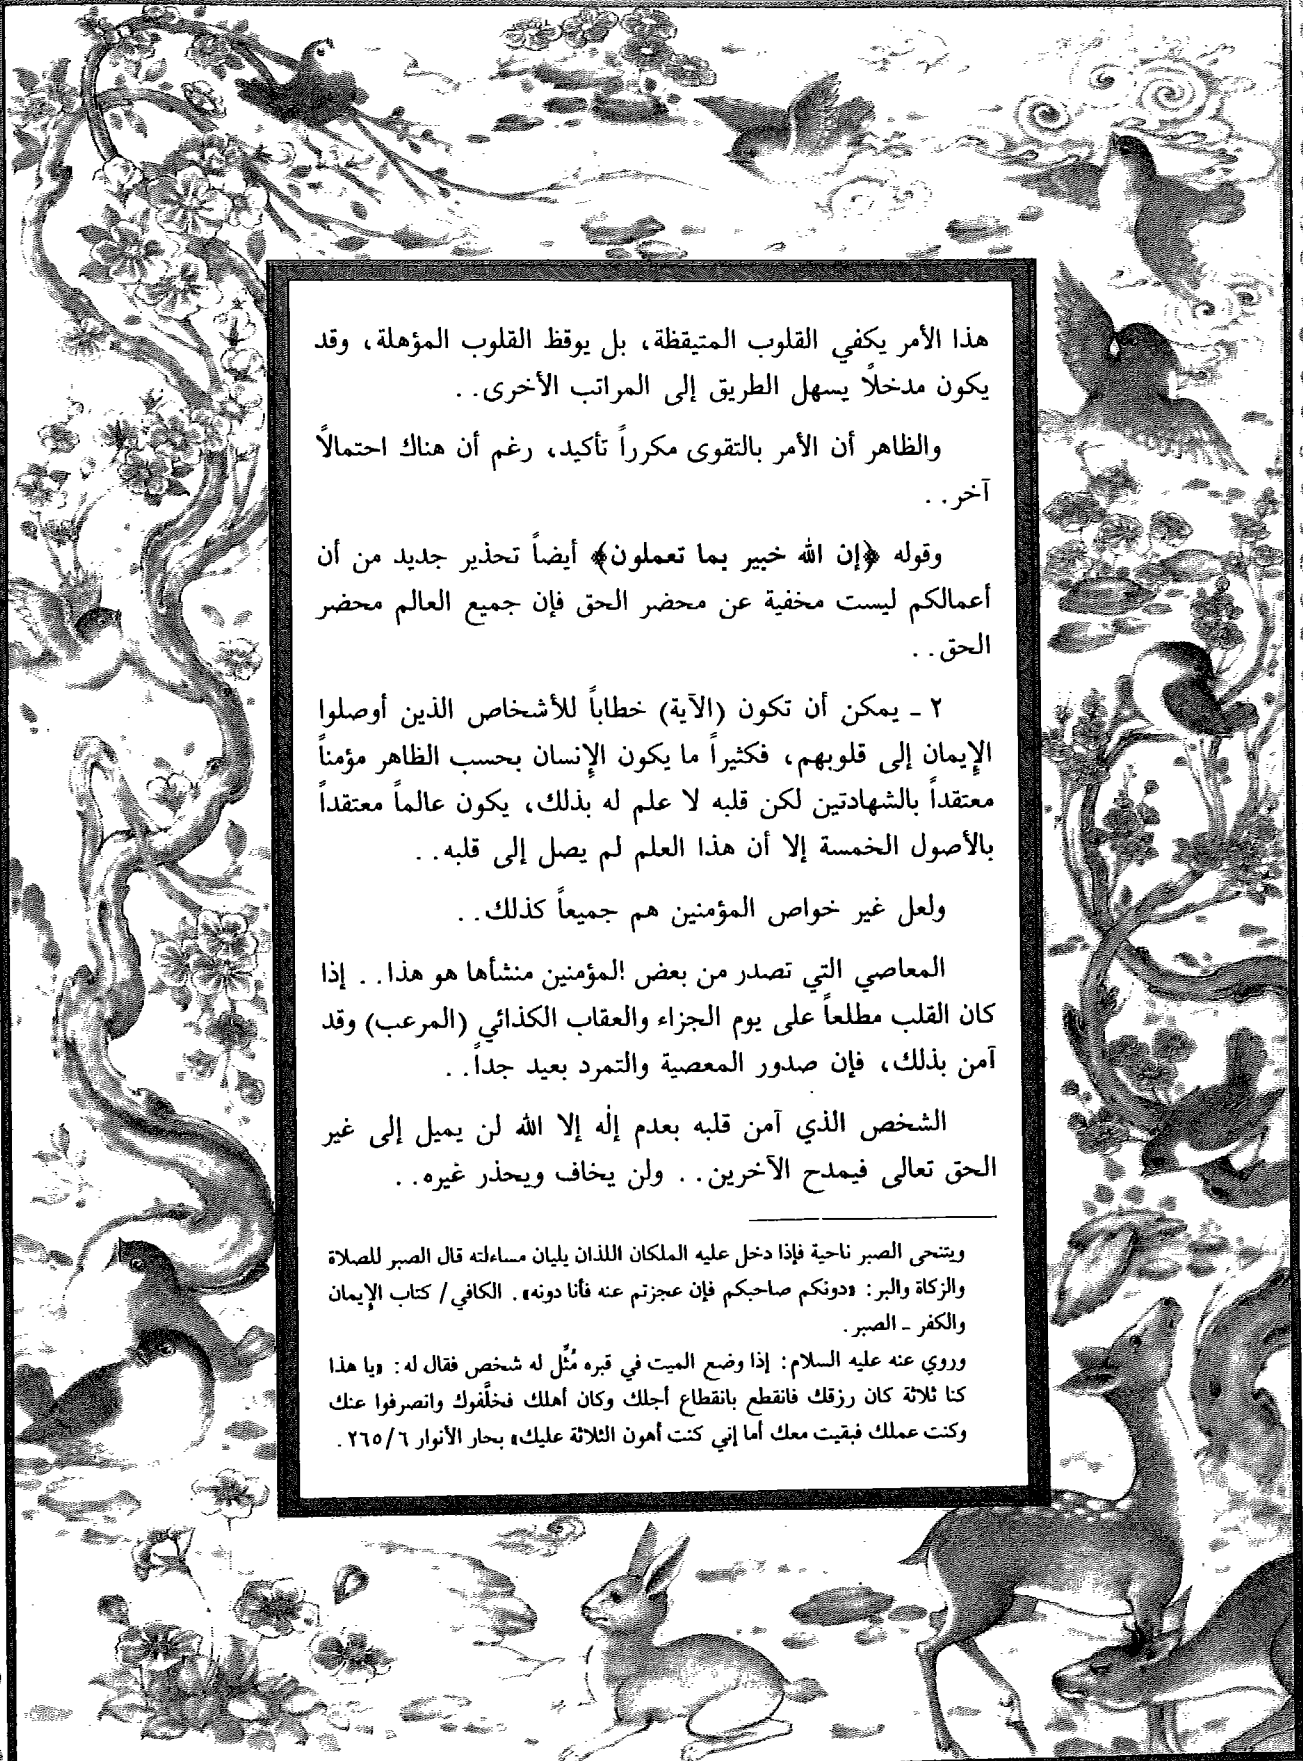 هذا الأمر يكفي القلوب المتيقظة، بل يوقظ القلوب المؤهلة، وقد
يكون مدخلاً يسهل الطريق إلى المراتب الأخرى..
والظاهر أن الأمر بالتقوى مكرراً تأكيد، رغم أن هناك احتمالاً
آخر..
وقوله ﴿إن الله خبير بما تعملون﴾ أيضاً تحذير جديد من أن
أعمالكم ليست مخفية عن محضر الحق فإن جميع العالم محضر
الحق..
٢ ـ يمكن أن تكون (الآية) خطاباً للأشخاص الذين أوصلوا
الإيمان إلى قلوبهم، فكثيراً ما يكون الإنسان بحسب الظاهر مؤمناً
معتقداً بالشهادتين لكن قلبه لا علم له بذلك، يكون عالماً معتقداً
بالأصول الخمسة إلا أن هذا العلم لم يصل إلى قلبه..
ولعل غير خواص المؤمنين هم جميعاً كذلك..
المعاصي التي تصدر من بعض المؤمنين منشأها هو هذا.. إذا
كان القلب مطلعاً على يوم الجزاء والعقاب الكذائي (المرعب) وقد
آمن بذلك، فإن صدور المعصية والتمرد بعيد جداً..
الشخص الذي آمن قلبه بعدم إله إلا الله لن يميل إلى غير
الحق تعالى فيمدح الآخرين.. ولن يخاف ويحذر غيره..
ويتنحى الصبر ناحية فإذا دخل عليه الملكان اللذان يليان مساءلته قال الصبر للصلاة
والزكاة والبر: «دونكم صاحبكم فإن عجزتم عنه فأنا دونه». الكافي/ كتاب الإيمان
والكفر ـ الصبر.
وروي عنه عليه السلام: إذا وضع الميت في قبره مُثِّل له شخص فقال له: «يا هذا
كنا ثلاثة كان رزقك فانقطع بانقطاع أجلك وكان أهلك فخلَّفوك وانصرفوا عنك
وكنت عملك فبقيت معك أما إني كنت أهون الثلاثة عليك» بحار الأنوار ٦/ ٢٦٥.